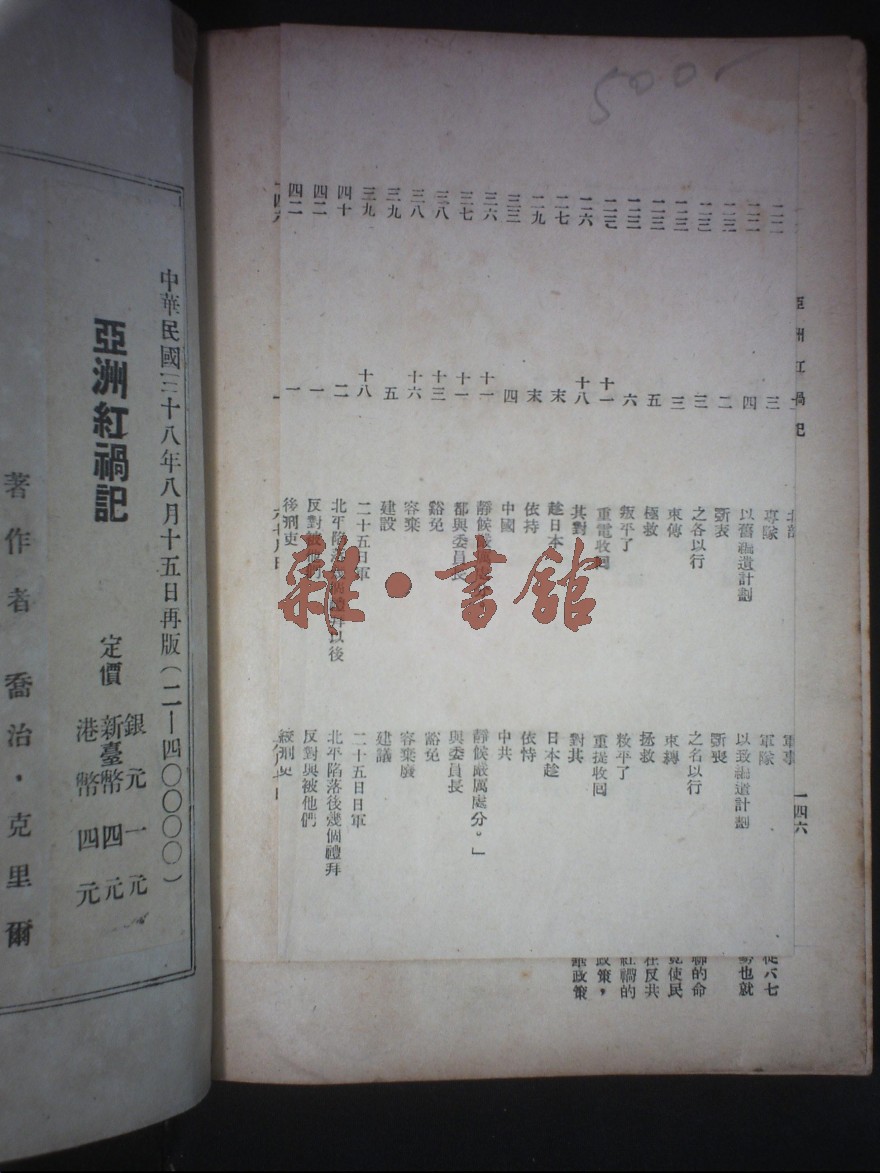 500
亞洲紅禍記
一四六
三 專隊 軍隊
四 以舊編遣計劃 以致編遣計劃
二三 二 斷表 斷喪
二三 三 之各以行 之名以行
二三 三 束傳 束縛
二三 五 極救 拯救
二三 六 叛平了 敉平了
十一 重電收回 重提收回
二六 十八 其對 對其
二七 末 趁日本 日本趁
二九 末 依持 依恃
三三 四 中國 中共
三六 十一 靜候嚴 靜候嚴厲處分。」
三七 十一 都與委員長 與委員長
三八 十三 谿免 豁免
三八 十六 容棄 容棄廢
三九 五 建設 建議
三九 十八 二十五日軍 二十五日日軍
四十 二 北平陷落 禮拜以後 北平陷落後幾個禮拜
四二 一 反對被他們 反對與被他們
四二 一 後刑吏
從六七
勢也就
聯的命
竟使民
在反共
紅禍的
政策，
雜·書館
中華民國三十八年八月十五日再版（二—四〇〇〇〇）
亞洲紅禍記
定價
銀元一元
新臺幣四元
港幣四元
著作者 喬治·克里爾